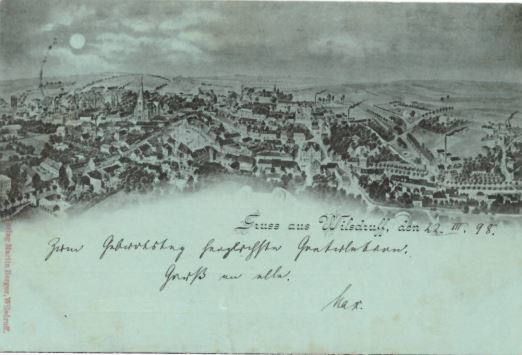 Gruss aus Wilsdruff, den 22. III. 98.
Zum Geburtstag herzlichste Gratulation.
Gruß an alle.
Max.
Verlag Martin Berger, Wilsdruff.